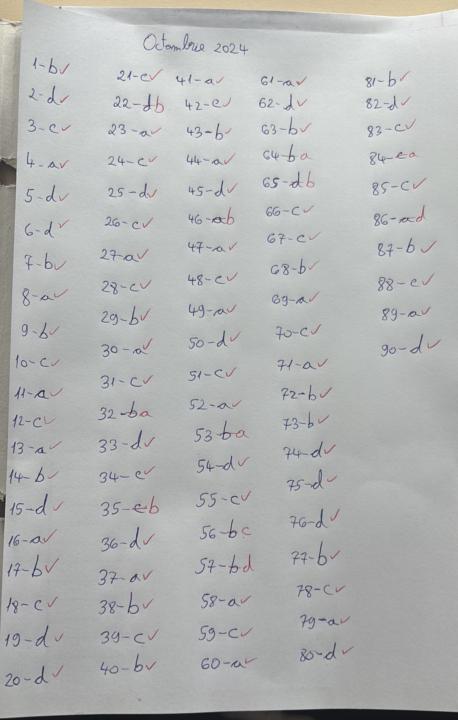 Octombrie 2024
1-b✓
2-d✓
3-c✓
4-a✓
5-d✓
6-d✓
7-b✓
8-a✓
9-b✓
10-c✓
11-a✓
12-c✓
13-a✓
14-b✓
15-d✓
16-a✓
17-b✓
18-c✓
19-d✓
20-d✓
21-c✓
22-db
23-a✓
24-c✓
25-d✓
26-c✓
27-a✓
28-c✓
29-b✓
30-a✓
31-c✓
32-ba
33-d✓
34-c✓
35-cb
36-d✓
37-a✓
38-b✓
39-c✓
40-b✓
41-a✓
42-c✓
43-b✓
44-a✓
45-d✓
46-ab
47-a✓
48-c✓
49-a✓
50-d✓
51-c✓
52-a✓
53-ba
54-d✓
55-c✓
56-bc
57-bd
58-a✓
59-c✓
60-a✓
61-a✓
62-d✓
63-b✓
64-ba
65-db
66-c✓
67-c✓
68-b✓
69-a✓
70-c✓
71-a✓
72-b✓
73-b✓
74-d✓
75-d✓
76-d✓
77-b✓
78-c✓
79-a✓
80-d✓
81-b✓
82-d✓
83-c✓
84-ca
85-c✓
86-ad
87-b✓
88-c✓
89-a✓
90-d✓